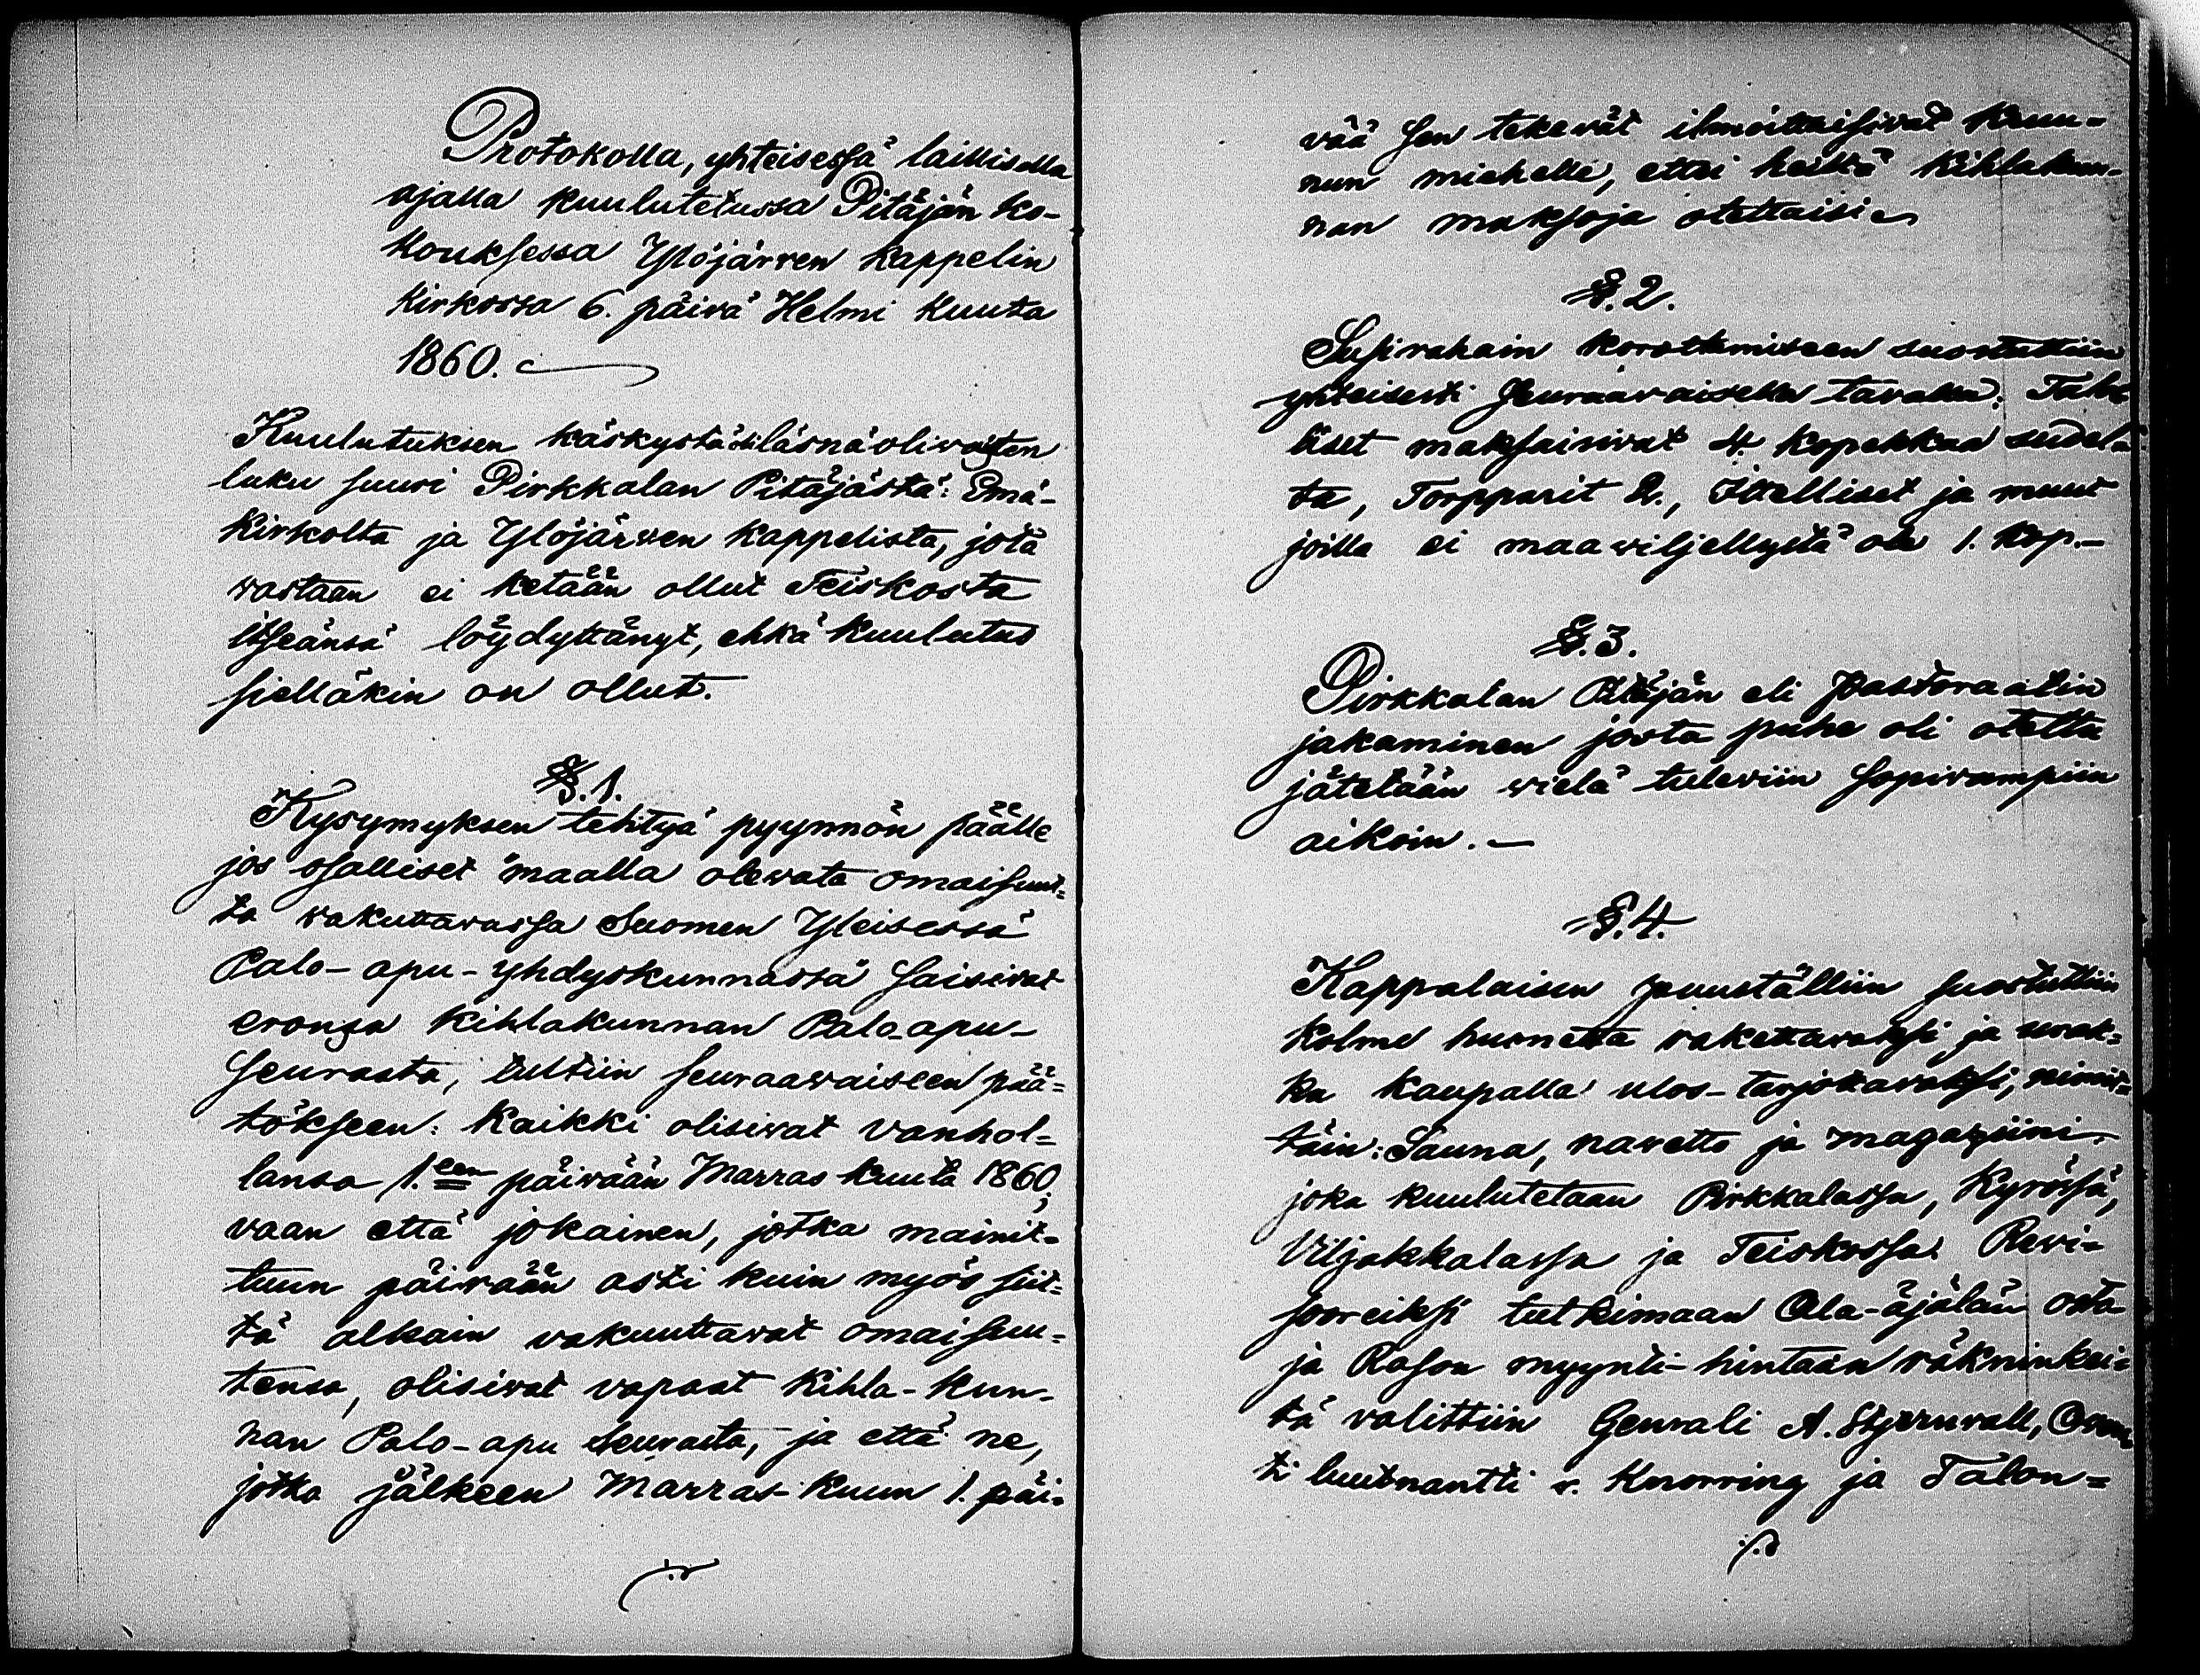 Protokolla, yhteisessä laillisella
ajalla kuulutetussa Pitäjän ko-
kouksessa Ylöjärven kappelin
kirkossa 6. päivä Helmi kuuta
1860.
Kuulutuksen käskystä oli läsnäolivaisten
luku suuri Pirkkalan Pitäjästä: Emä-
kirkolta ja Ylöjärven kappelista, jota
vastaan ei ketään ollut Teiskosta
itseänsä löydyttänyt, ehkä kuulutus
sielläkin on ollut.
§. 1.
Kysymyksen tehtyä pyynnön päälle
jos osalliset "maalla olevata omaisuut-
ta vakuttavassa Suomen Yleisessä
Palo-apu-yhdyskunnassa" saisivat
eronsa kihlakunnan Palo-apu-
Seurasta, tultiin seuraavaiseen pää-
tökseen: Kaikki olisivat vanhol-
lansa 1.een päivään Marras kuuta 1860;
vaan että jokainen, jotka mainit-
tuun päivään asti kuin myös siit-
tä alkain vakuuttavat omaisuu-
tensa, olisivat vapaat kihla-kun-
nan Palo-apu Seurasta, ja että ne,
jotka jälkeen Marras-kuun 1. päi-
vää sen tekevät ilmoittaisivat Kruu-
nun miehelle, ettei heiltä kihlakun-
nan maksoja otettaisi
§. 2.
Susirahain korottamiseen suostuttiin
yhteisesti seuraavaisella tavalla: Talol-
liset maksaisivat 4. kopekkaa sudel-
ta, Torpparit 2., Itselliset ja muut
joilla ei maawiljellystä ole 1. kop.-
§. 3.
Pirkkalan Pitäjän eli Pastoraatin
jakaminen josta puhe oli otettu
jätetään vielä tuleviin sopivampiin
aikoin. -
§. 4.
Kappalaisen puuställiin suostuttiin
kolme huonetta rakettavaksi ja urak-
ka kaupalla ulos-tarjottavaksi, nimit-
täin: Sauna, navetta ja magaziini
joka kuulutetaan Pirkkalassa, Kyrössä,
Viljakkalassa ja Teiskossa. Revi-
sooreiksi tutkimaan Ala-äjälän osta
ja Rason myynti-hintaan räkninkei-
tä valittiin Genrali A. Stjernvall,
ti luutnantti v. Knorring ja Talon-